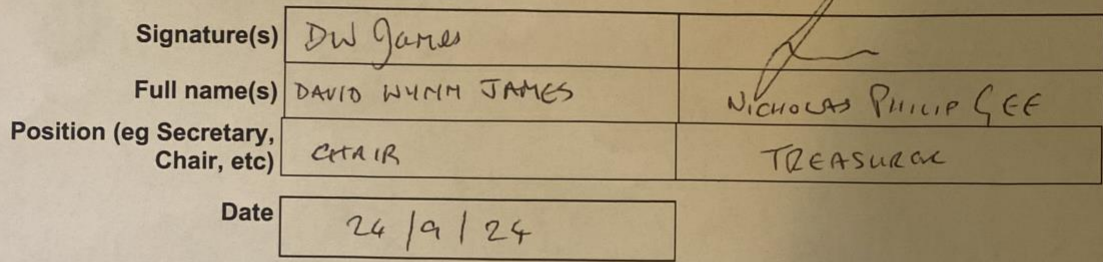 Signature(s) DW James
Full name(s) DAVID WYNN JAMES NICHOLAS PHILIP GEE
Position (eg Secretary,
Chair, etc) CHAIR TREASURER
Date 24/9/24